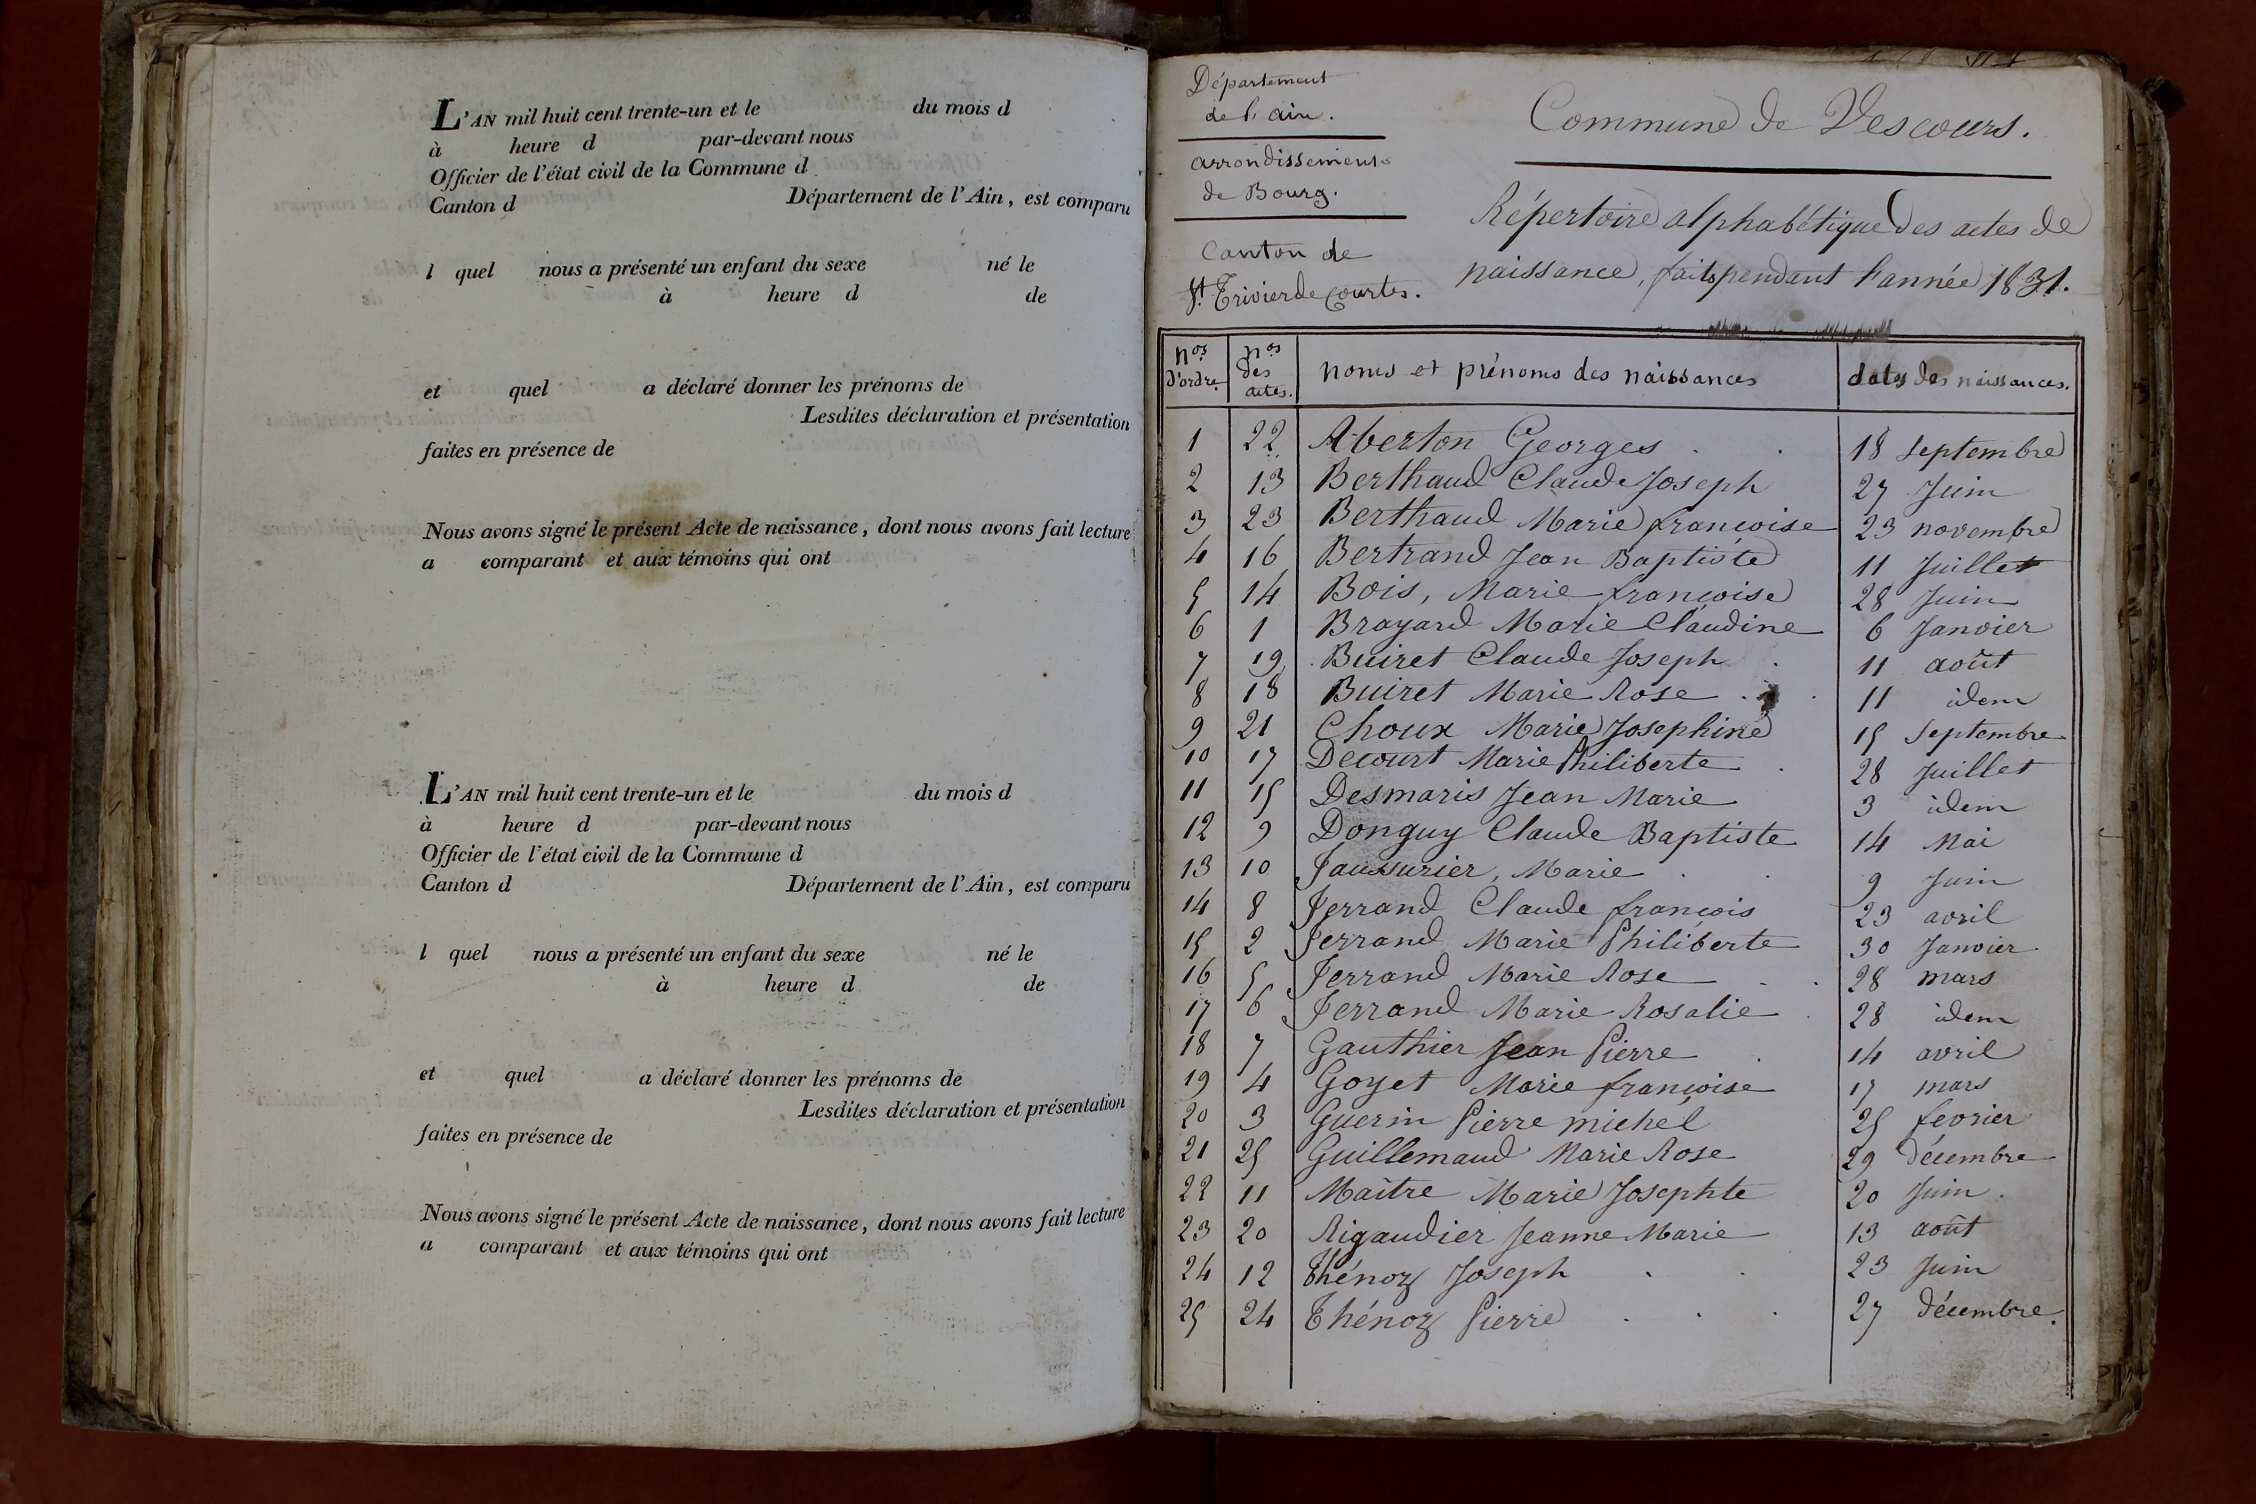 L'AN mil huit cent trente-un et le du mois d
à heure d par-devant nous
Officier de l'état civil de la Commune d
Canton d Département de l'Ain, est comparu
l quel nous a présenté un enfant du sexe né le
à heure d de
et quel a déclaré donner les prénoms de
Lesdites déclaration et présentation
faites en présence de
Nous avons signé le présent Acte de naissance, dont nous avons fait lecture
a comparant et aux témoins qui ont
L'AN mil huit cent trente-un et le du mois d
à heure d par-devant nous
Officier de l'état civil de la Commune d
Canton d Département de l'Ain, est comparu
l quel nous a présenté un enfant du sexe né le
à heure d de
et quel a déclaré donner les prénoms de
Lesdites déclaration et présentation
faites en présence de
Nous avons signé le présent Acte de naissance, dont nous avons fait lecture
a comparant et aux témoins qui ont
Département
de l'ain.
arrondissement
de Bourg.
Canton de
St Trivier de Courtes.
Commune de Vescours.
Répertoire alphabétique des actes de
naissance, faits pendant l'année 1831.
nos d'ordre nos des actes. noms et prénoms des naissances dates des naissances.
1 22 Aberton Georges 18 septembre
2 13 Berthaud Claude Joseph 27 Juin
3 23 Berthaud Marie françoise 23 novembre
4 16 Bertrand Jean Baptiste 11 Juillet
5 14 Bois, Marie françoise 28 Juin
6 1 Brayard Marie Claudine 6 Janvier
7 19 Buiret Claude Joseph 11 août
8 18 Buiret Marie Rose 11 idem
9 21 Choux Marie Josephine 15 Septembre
10 17 Decourt Marie Philiberte 28 Juillet
11 15 Desmaris Jean Marie 3 idem
12 9 Donguy Claude Baptiste 14 Mai
13 10 Faussurier, Marie 9 Juin
14 8 Ferrand Claude françois 23 avril
15 2 Ferrand Marie Philiberte 30 Janvier
16 5 Ferrand Marie Rose 28 mars
17 6 Ferrand Marie Rosalie 28 idem
18 7 Gauthier Jean Pierre 14 avril
19 4 Goyet Marie françoise 17 mars
20 3 Guerin Pierre michel 25 fevrier
21 25 Guillemaud Marie Rose 29 décembre
22 11 Maître Marie Josephte 20 Juin.
23 20 Rigaudier Jeanne Marie 13 août
24 12 Thénoz Joseph 23 Juin
25 24 Thénoz Pierre 27 décembre.